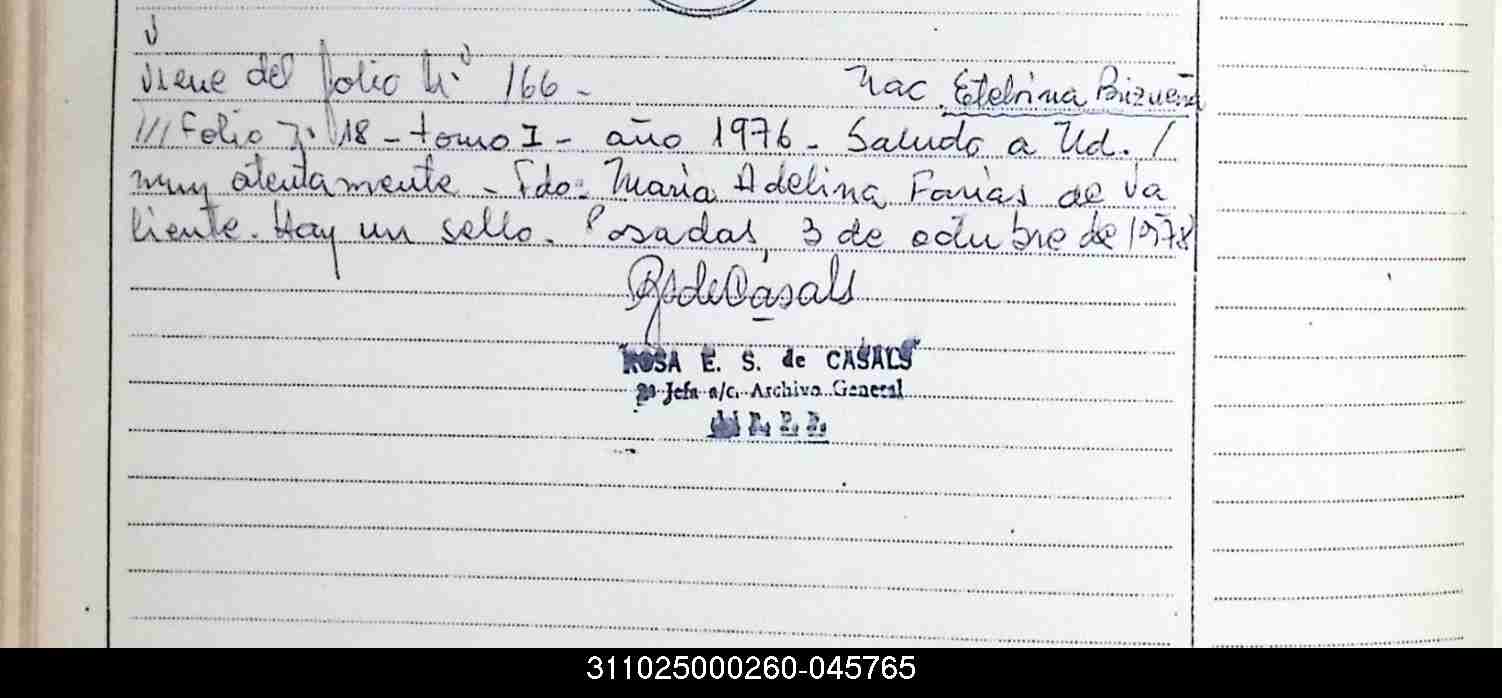 viene del folio Nº 166 - Nac. Etelvina Brizuela
///Folio Nº 18 - tomo I - año 1976 - Saludo a Ud. /
muy atentamente - Fdo: Maria Adelina Farias de Va
liente. Hay un sello. Posadas, 3 de octubre de 1978
RSdeCasals
ROSA E. S. de CASALS
2ª Jefa a/c. Archivo General
311025000260-045765